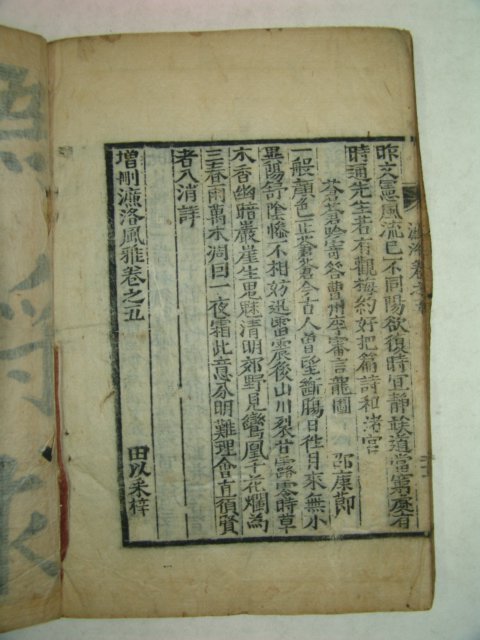 昨文思風流已不同陽欲復時宜靜道當窮處有
時通先生若有觀梅約好把篇詩和渚宮
蒼蒼吟寄答曹州李審言龍圖 邵康節
一般顔色正蒼蒼今古人曾望斷腸日往月來無小
異陽舒陰慘不相妨迅雷震後山川裂甘露零時草
木香幽暗巖崖生鬼魅清明郊野見鸞凰千花爛爲
三春雨萬木凋因一夜霜此意分明難理會直須賢
者入消詳
增刪濂洛風雅卷之五
田以采梓